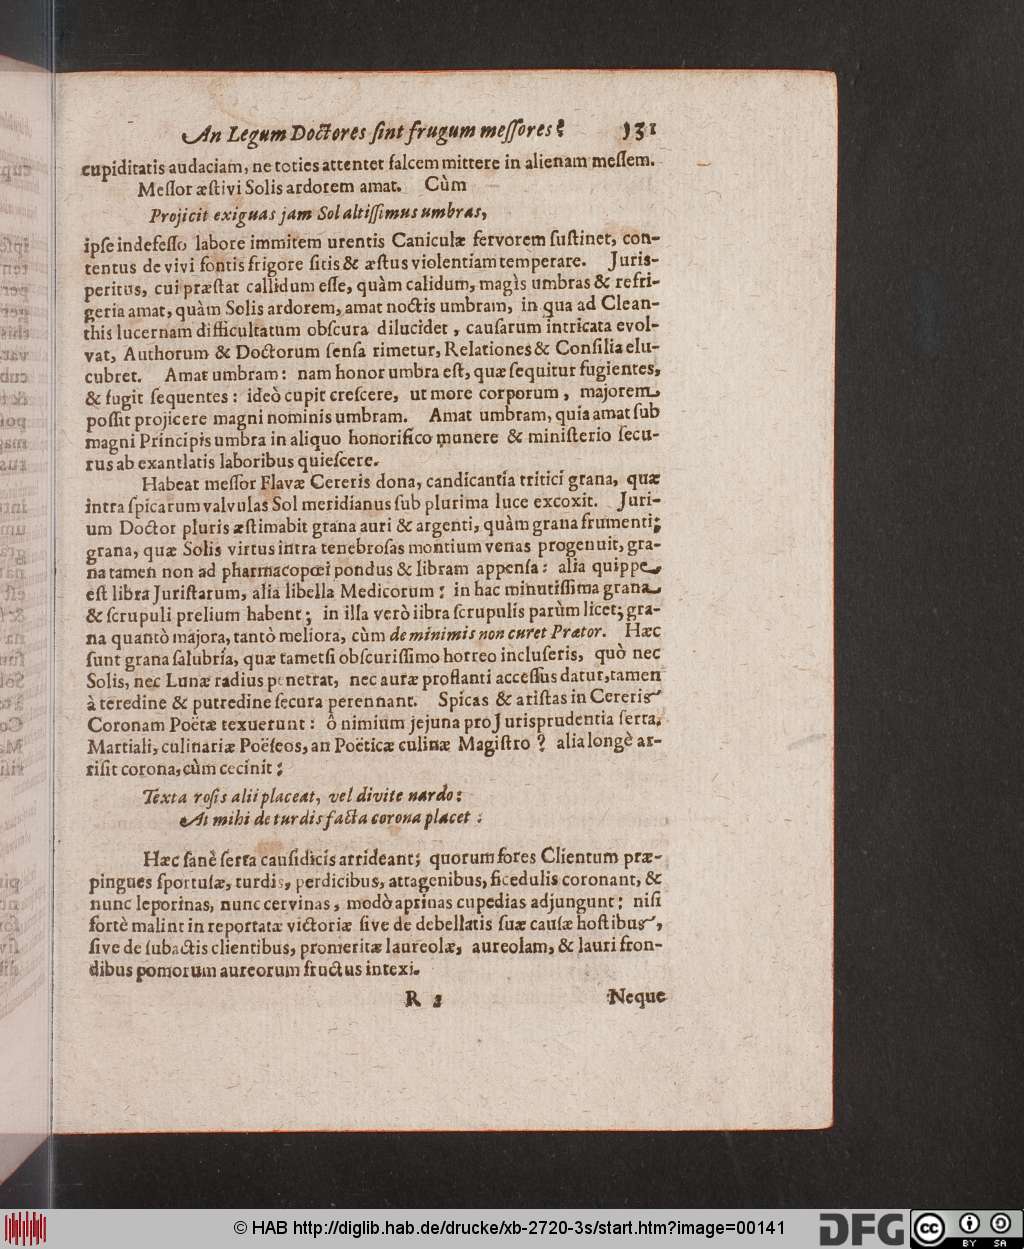 An Legum Doctores ſint frugum meſſores? 131
cupiditatis audaciam, ne toties attentet falcem mittere in alienam meſſem.
Meſſor æſtivi Solis ardorem amat. Cùm
Projicit exiguas jam Sol altiſſimus umbras,
ipſe indefeſſo labore immitem urentis Caniculæ fervorem ſuſtinet, con-
tentus de vivi fontis frigore ſitis & æſtus violentiam temperare. Juris-
peritus, cui præſtat callidum eſſe, quàm calidum, magìs umbras & refri-
geria amat, quàm Solis ardorem, amat noctis umbram, in qua ad Clean-
this lucernam difficultatum obſcura dilucidet, cauſarum intricata evol-
vat, Authorum & Doctorum ſenſa rimetur, Relationes & Conſilia elu-
cubret. Amat umbram: nam honor umbra eſt, quæ ſequitur fugientes,
& fugit ſequentes: ideò cupit creſcere, ut more corporum, majorem
poſſit projicere magni nominis umbram. Amat umbram, quia amat ſub
magni Principis umbra in aliquo honorifico munere & miniſterio ſecu-
rus ab exantlatis laboribus quieſcere.
Habeat meſſor Flavæ Cereris dona, candicantia tritici grana, quæ
intra ſpicarum valvulas Sol meridianus ſub plurima luce excoxit. Juri-
um Doctor pluris æſtimabit grana auri & argenti, quàm grana frumenti;
grana, quæ Solis virtus intra tenebroſas montium venas progenuit, gra-
na tamen non ad pharmacopœi pondus & libram appenſa: alia quippe
eſt libra Juriſtarum, alia libella Medicorum: in hac minutiſſima grana
& ſcrupuli prelium habent; in illa verò iibra ſcrupulis parùm licet; gra-
na quantò majora, tantò meliora, cùm de minimis non curet Prætor. Hæc
ſunt grana ſalubria, quæ tametſi obſcuriſſimo horreo incluſeris, quò nec
Solis, nec Lunæ radius penetrat, nec auræ proflanti acceſſus datur, tamen
à teredine & putredine ſecura perennant. Spicas & ariſtas in Cereris
Coronam Poëtæ texuerunt: ô nimium jejuna pro Jurisprudentia ſerta.
Martiali, culinariæ Poëſeos, an Poëticæ culinæ Magiſtro? alia longè ar-
riſit corona, cùm cecinit:
Texta roſis alii placeat, vel divite nardo:
At mihi de turdis facta corona placet:
Hæc ſanè ſerta cauſidicis arrideant; quorum fores Clientum præ-
pingues ſportulæ, turdis, perdicibus, attagenibus, ficedulis coronant, &
nunc leporinas, nunc cervinas, modò aprinas cupedias adjungunt: niſi
fortè malint in reportatæ victoriæ ſive de debellatis ſuæ cauſæ hoſtibus,
ſive de ſubactis clientibus, promeritæ laureolæ, aureolam, & lauri fron-
dibus pomorum aureorum fructus intexi.
R 2 Neque
© HAB http://diglib.hab.de/drucke/xb-2720-3s/start.htm?image=00141
DFG
cc BY SA